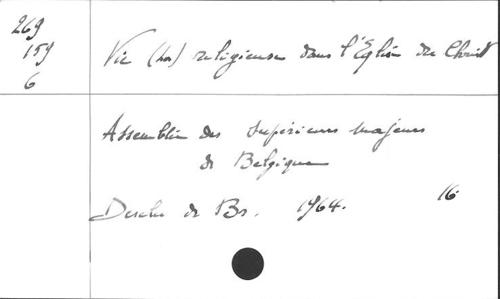 269
159
6
Vie (La) religieuse dans l'Eglise du Christ
Assemblée des Supérieurs Majeurs
de Belgique
Desclée de Br. 1964. 16